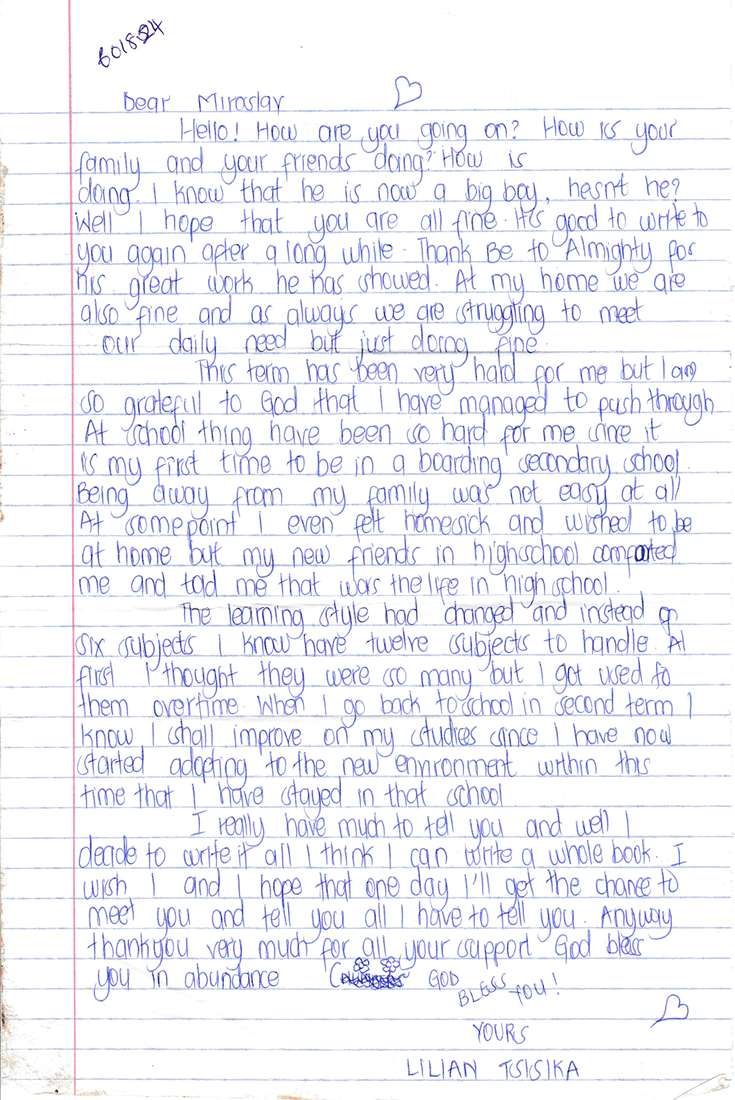 6018524
Dear Miroslav
Hello! How are you going on? How is your
family and your friends doing? How is
doing. I know that he is now a big boy, hesn't he?
Well I hope that you are all fine. It's good to write to
you again after a long while. Thank Be to Almighty for
his great work he has showed. At my home we are
also fine and as always we are struggling to meet
our daily need but just doing fine.
This term has been very hard for me but I am
so grateful to God that I have managed to push through
At school thing have been so hard for me since it
is my first time to be in a boarding secondary school.
Being away from my family was not easy at all
At somepoint I even felt homesick and wished to be
at home but my new friends in highschool comforted
me and told me that was the life in high school.
The learning style had changed and instead of
six subjects I know have twelve subjects to handle. At
first I thought they were so many but I got used to
them overtime. When I go back to school in second term I
know I shall improve on my studies since I have now
started adapting to the new environment within this
time that I have stayed in that school
I really have much to tell you and well I
decide to write it all I think I can write a whole book. I
wish I and I hope that one day I'll get the chance to
meet you and tell you all I have to tell you. Anyway
thankyou very much for all your support God bless
you in abundance GOD
BLESS YOU!
YOURS
LILIAN TSISIKA